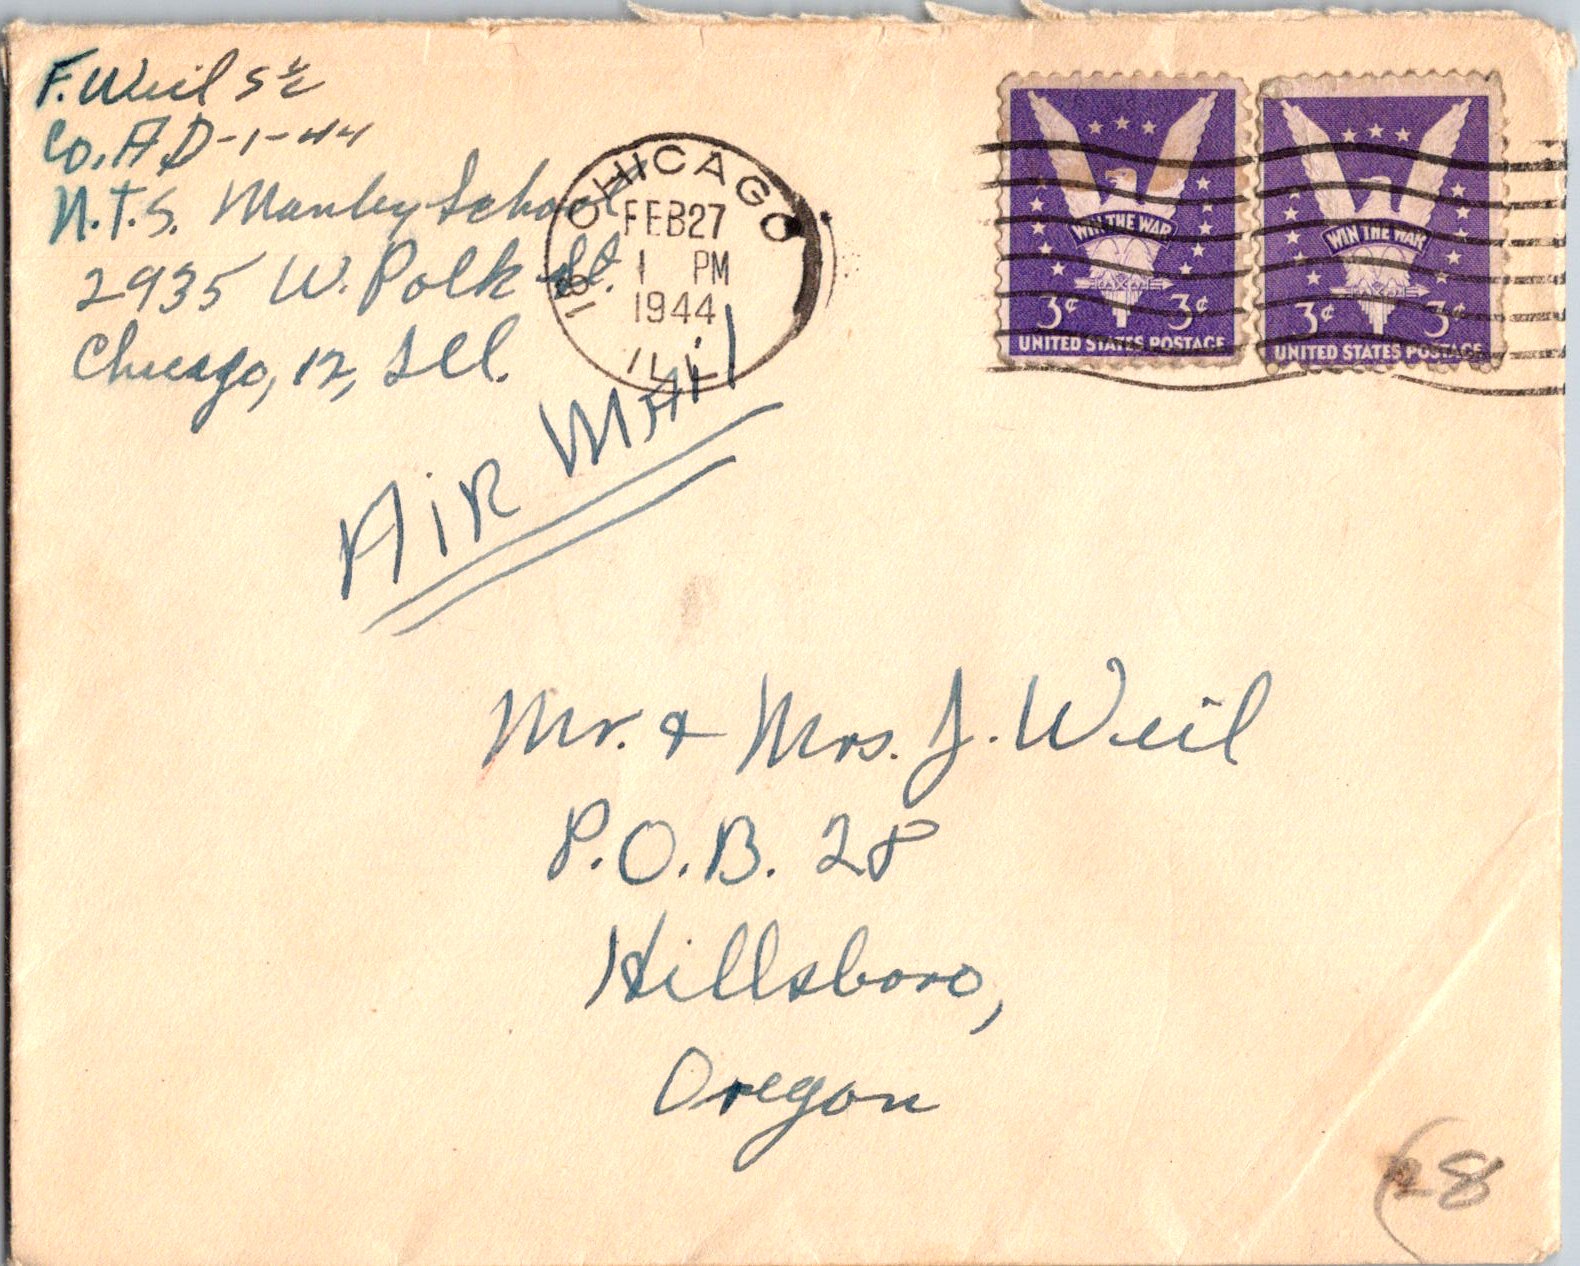 F. Weil S 2/c
Co. A D-1-44
N.T.S. Manley School
2935 W. Polk St.
Chicago, 12, Ill.
CHICAGO
FEB 27
1 PM
1944
ILL.
WIN THE WAR
3¢ 3¢
UNITED STATES POSTAGE
WIN THE WAR
3¢ 3¢
UNITED STATES POSTAGE
AIR MAIL
Mr. & Mrs. J. Weil
P.O.B. 28
Hillsboro,
Oregon
28